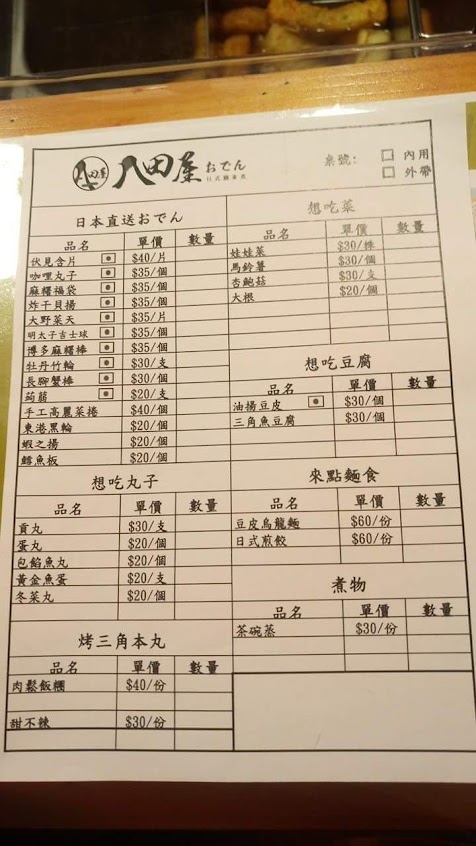 八田屋
八田屋 おでん
日式關東煮
桌號: □ 內用
□ 外帶
日本直送おでん
品名 單價 數量
伏見含片 $40/片
咖哩丸子 $35/個
麻糬福袋 $35/個
炸干貝揚 $35/個
大野菜天 $35/片
明太子吉士球 $35/個
博多麻糬棒 $35/個
牡丹竹輪 $30/支
長腳蟹棒 $30/個
蒟蒻 $20/支
手工高麗菜捲 $40/個
東港黑輪 $20/個
蝦之揚 $20/個
鱈魚板 $20/個
想吃丸子
品名 單價 數量
貢丸 $30/支
蛋丸 $20/個
包餡魚丸 $20/個
黃金魚蛋 $20/支
冬菜丸 $20/個
烤三角本丸
品名 單價 數量
肉鬆飯糰 $40/份
甜不辣 $30/份
想吃菜
品名 單價 數量
娃娃菜 $30/株
馬鈴薯 $30/個
杏鮑菇 $30/支
大根 $20/個
想吃豆腐
品名 單價 數量
油揚豆皮 $30/個
三角魚豆腐 $30/個
來點麵食
品名 單價 數量
豆皮烏龍麵 $60/份
日式煎餃 $60/份
煮物
品名 單價 數量
茶碗蒸 $30/份